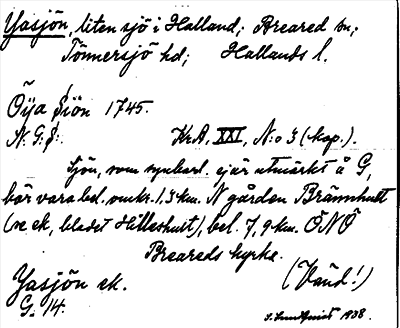 Yasjön, liten sjö i Halland; Breared sn;
Tönnersjö hd; Hallands l.
Öija Siön 1745.
N. G. S. KrA, XXI, No 3 (kop.).
Sjön, som synbarl. ej är utmärkt å G,
bör vara bel. omkr. 1,3 km. N gården Brännhult
(se ek, bladet Hilleshult), bel. 7,9 km. ÖNÖ
Breareds kyrka.
Yasjön ek. (Vänd!)
G. 14. 1938.